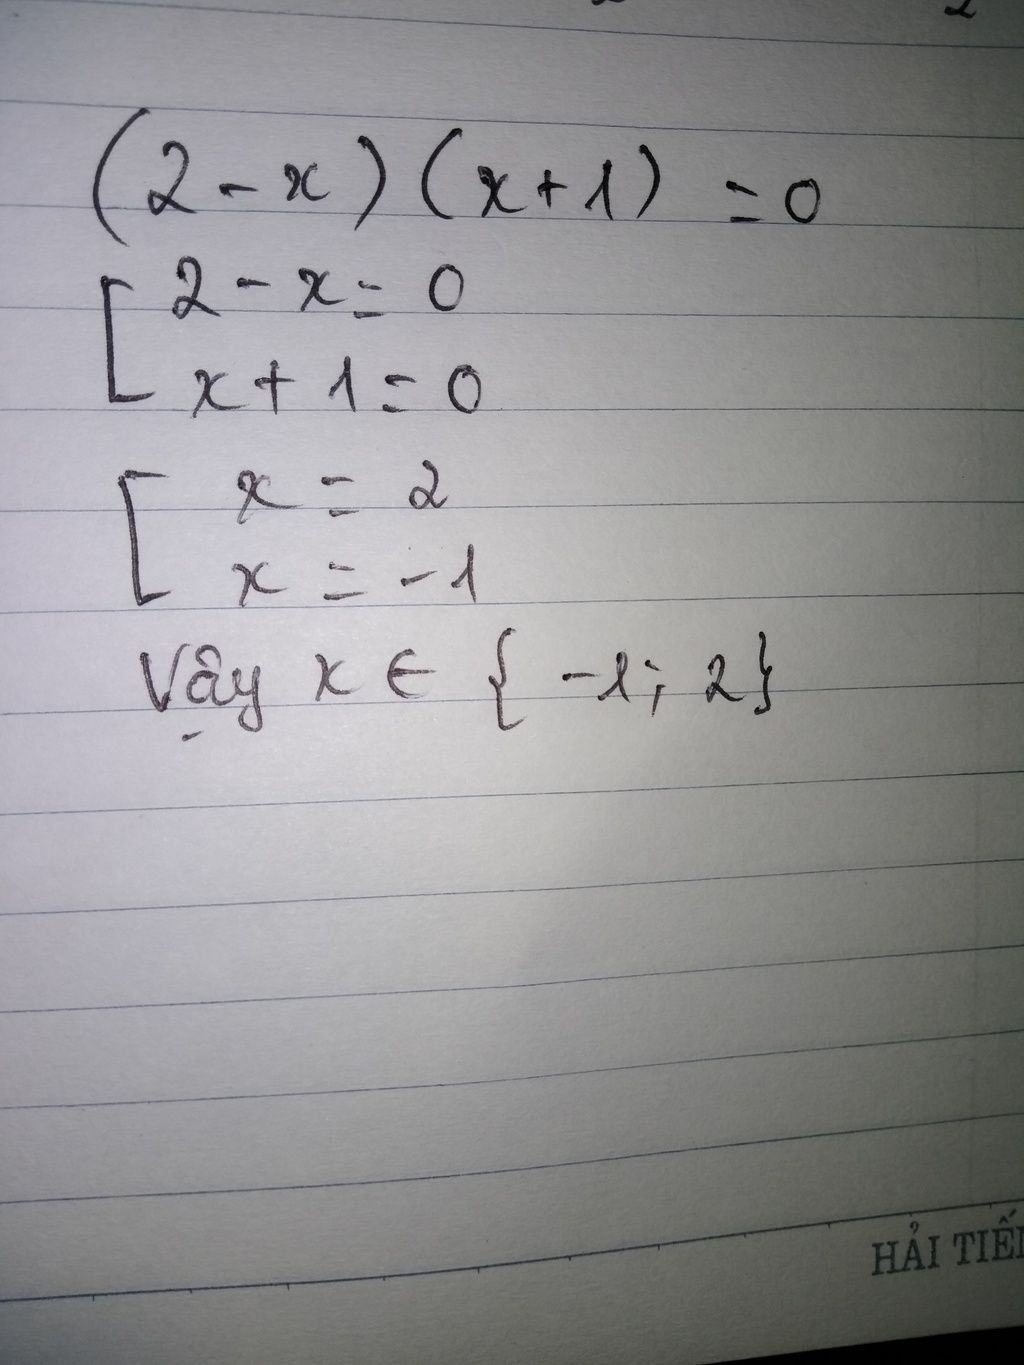 (2-x)(x+1) = 0
[ 2-x = 0
x+1 = 0
[ x = 2
x = -1
Vậy x ∈ {-1; 2}
HẢI TIẾ